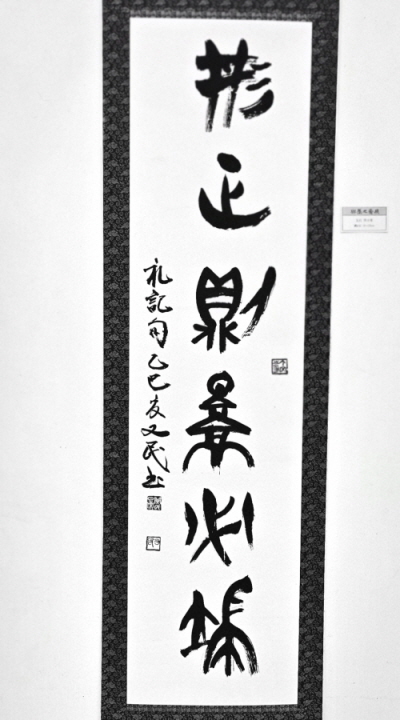 形正则景必端
礼記句乙巳友又民书